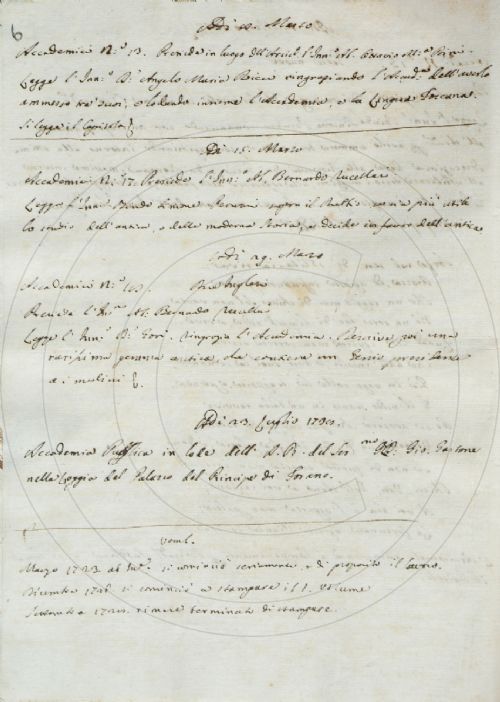 6
Adi Marzo
Accademici N.° 13. Presiede in luogo dell' Arcic.° l'Inn.° A.
Legge l'Inn.° D. Angelo Maria Ricca ringraziando l'Accad.a dell'averlo
ammesso tra suoi, e lodando insieme l'Accademia, e la Lingua Toscana.
Si legge il Capitolo
Di 15. Marzo
Accademici N.° 17. Presiede l'Inn.° A. Bernardo Rucellai
Legge l'Inn. sopra il sia più utile
lo studio dell'antica, o della moderna Storia, e decide in favor dell'antica.
Adi 29. Marzo
Accademici N.°
Presiede l'Inn. A. Bernardo Rucellai
Legge l'Inn.° D. Gori. Ringrazia l'Accademia. poi una
rarissima gemma antica, che contiene un Genio presidente
a i mulini
Adi 23. Luglio 1730.
Accademia Pubblica in lode dell' A. R. del Ser.mo G.D. Gio. Gastone
nella Loggia del Palazzo del Principe di
Marzo 1723 ab Inc. si cominciò seriamente, e di proposito il lavoro.
Dicembre si cominciò a stampare il I. Volume
rimase terminato di stampare.